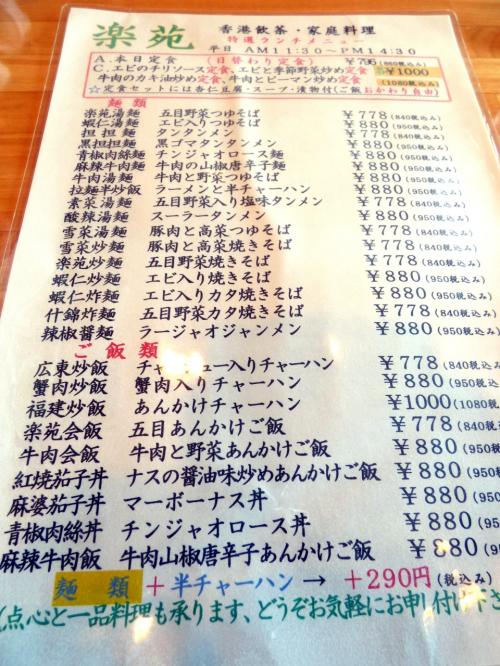 楽苑 香港飲茶・家庭料理
特選ランチメニュー
平日 AM11:30~PM14:30
A.本日定食 (日替わり定食) ￥795(860税込み)
C.エビのチリソース定食、エビと季節野菜炒め定食 ￥1000
牛肉のカキ油炒め定食、牛肉とピーマン炒め定食 (1080税込み)
☆定食セットには杏仁豆腐・スープ・漬物付(ご飯おかわり自由)
麺類
楽苑湯麺 五目野菜つゆそば ￥778(840税込み)
蝦仁湯麺 エビ入りつゆそば ￥880(950税込み)
担担麺 タンタンメン ￥778(840税込み)
黒担担麺 黒ゴマタンタンメン ￥880(950税込み)
青椒肉絲麺 チンジャオロース麺 ￥880(950税込み)
麻辣牛肉麺 牛肉の山椒唐辛子麺 ￥880(950税込み)
牛肉湯麺 牛肉と野菜つゆそば ￥880(950税込み)
拉麺半炒飯 ラーメンと半チャーハン ￥880(950税込み)
素菜湯麺 五目野菜入り塩味タンメン ￥778(840税込み)
酸辣湯麺 スーラータンメン ￥880(950税込み)
雪菜湯麺 豚肉と高菜つゆそば ￥778(840税込み)
雪菜炒麺 豚肉と高菜焼きそば ￥778(840税込み)
楽苑炒麺 五目野菜焼きそば ￥778(840税込み)
蝦仁炒麺 エビ入り焼きそば ￥880(950税込み)
蝦仁炸麺 エビ入りカタ焼きそば ￥880(950税込み)
什錦炸麺 五目野菜カタ焼きそば ￥778(840税込み)
辣椒醤麺 ラージャオジャンメン ￥880(950税込み)
ご飯類
広東炒飯 チャーシュー入りチャーハン ￥778(840税込み)
蟹肉炒飯 蟹肉入りチャーハン ￥880(950税込み)
福建炒飯 あんかけチャーハン ￥1000(1080税込
楽苑会飯 五目あんかけご飯 ￥778(840税込
牛肉会飯 牛肉と野菜あんかけご飯 ￥880(950税込
紅焼茄子丼 ナスの醤油味炒めあんかけご飯 ￥880(950税込
麻婆茄子丼 マーボーナス丼 ￥880(950税込
青椒肉絲丼 チンジャオロース丼 ￥880(950税込
麻辣牛肉飯 牛肉山椒唐辛子あんかけご飯 ￥880(950税込
麺類 + 半チャーハン → +290円(税込み)
点心と一品料理も承ります、どうぞお気軽にお申し付け下さ